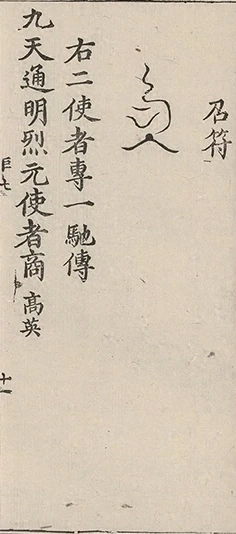 召符
右二使者專一馳傳
九天通明烈元使者商高英
十一